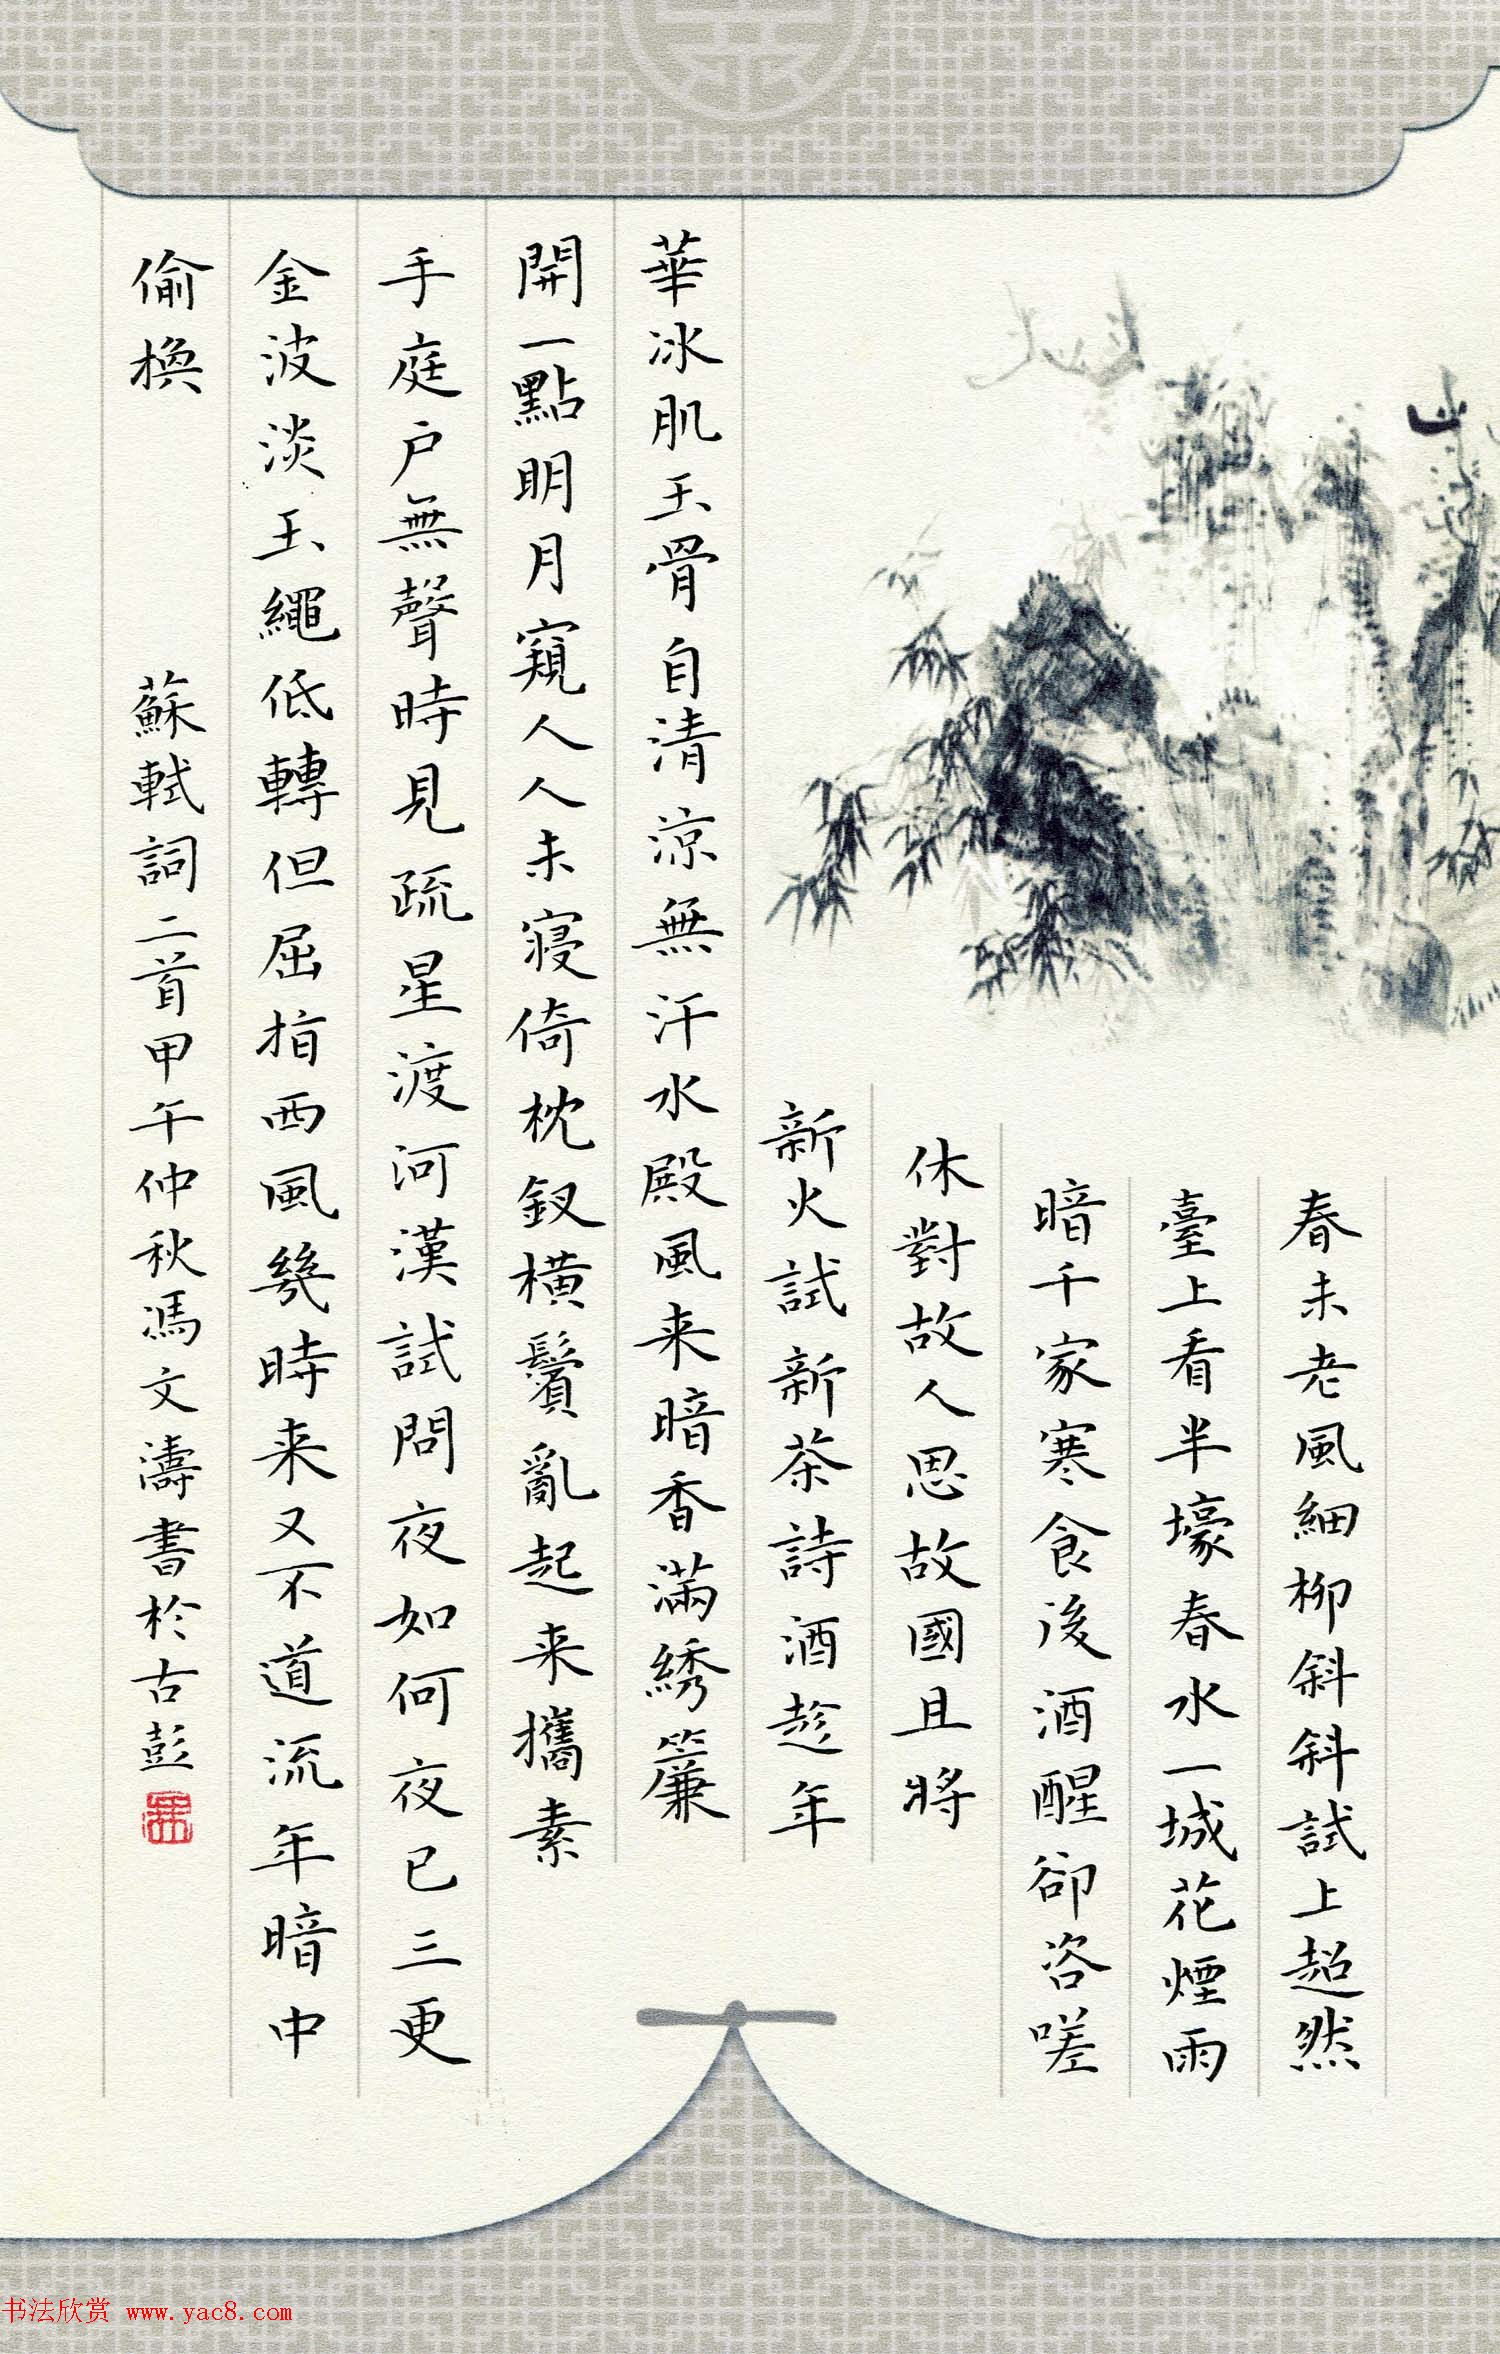 春未老風細柳斜斜試上超然
臺上看半壕春水一城花煙雨
暗千家寒食後酒醒卻咨嗟
休對故人思故國且將
新火試新茶詩酒趁年
華冰肌玉骨自清涼無汗水殿風来暗香滿綉簾
開一點明月窺人人未寢倚枕釵橫鬢亂起来攜素
手庭户無聲時見疏星渡河漢試問夜如何夜已三更
金波淡玉繩低轉但屈指西風幾時来又不道流年暗中
偷換
蘇軾詞二首甲午仲秋馮文濤書於古彭
书法欣赏 www.yac8.com